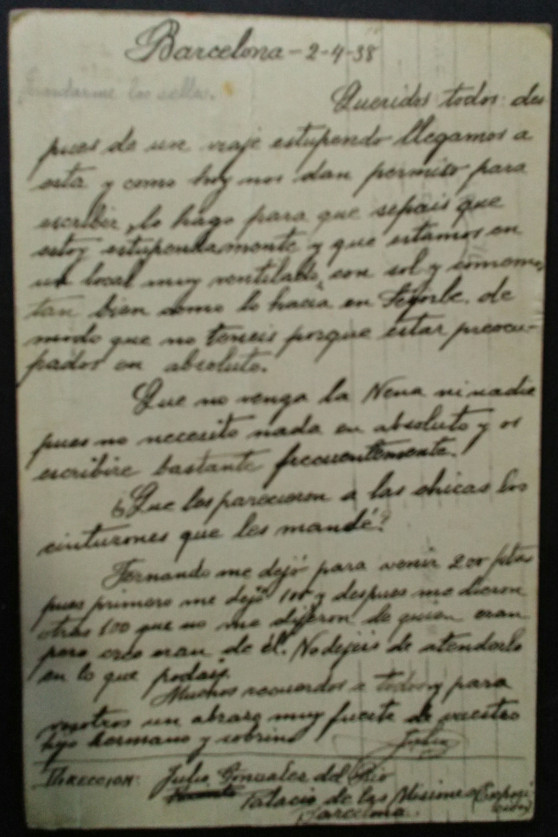 Barcelona - 2-4-38
Mandarme los sellos.
Queridos todos: des
pues de un viaje estupendo llegamos a
esta y como hoy nos dan permiso para
escribir, lo hago para que sepais que
estoy estupendamente y que estamos en
un local muy ventilado, con sol y comemos
tan bien como lo hacia en Segorbe, de
modo que no teneis porque estar preocu-
pados en absoluto.
Que no venga la Nena ni nadie
pues no necesito nada en absoluto y os
escribire bastante frecuentemente.
¿Que les parecieron a las chicas los
cinturones que les mandé?
Fernando me dejó para venir 200 ptas
pues primero me dejó 100 y despues me dieron
otras 100 que no me dijeron de quien eran
pero creo eran de él. No dejeis de atenderlo
en lo que podais.
Muchos recuerdos a todos y para
vosotros un abrazo muy fuerte de vuestro
hijo hermano y sobrino
Julio
DIRECCION: Julio Gonzalez del Rio
Palacio de las Misiones (Exposi
cion)
Barcelona.